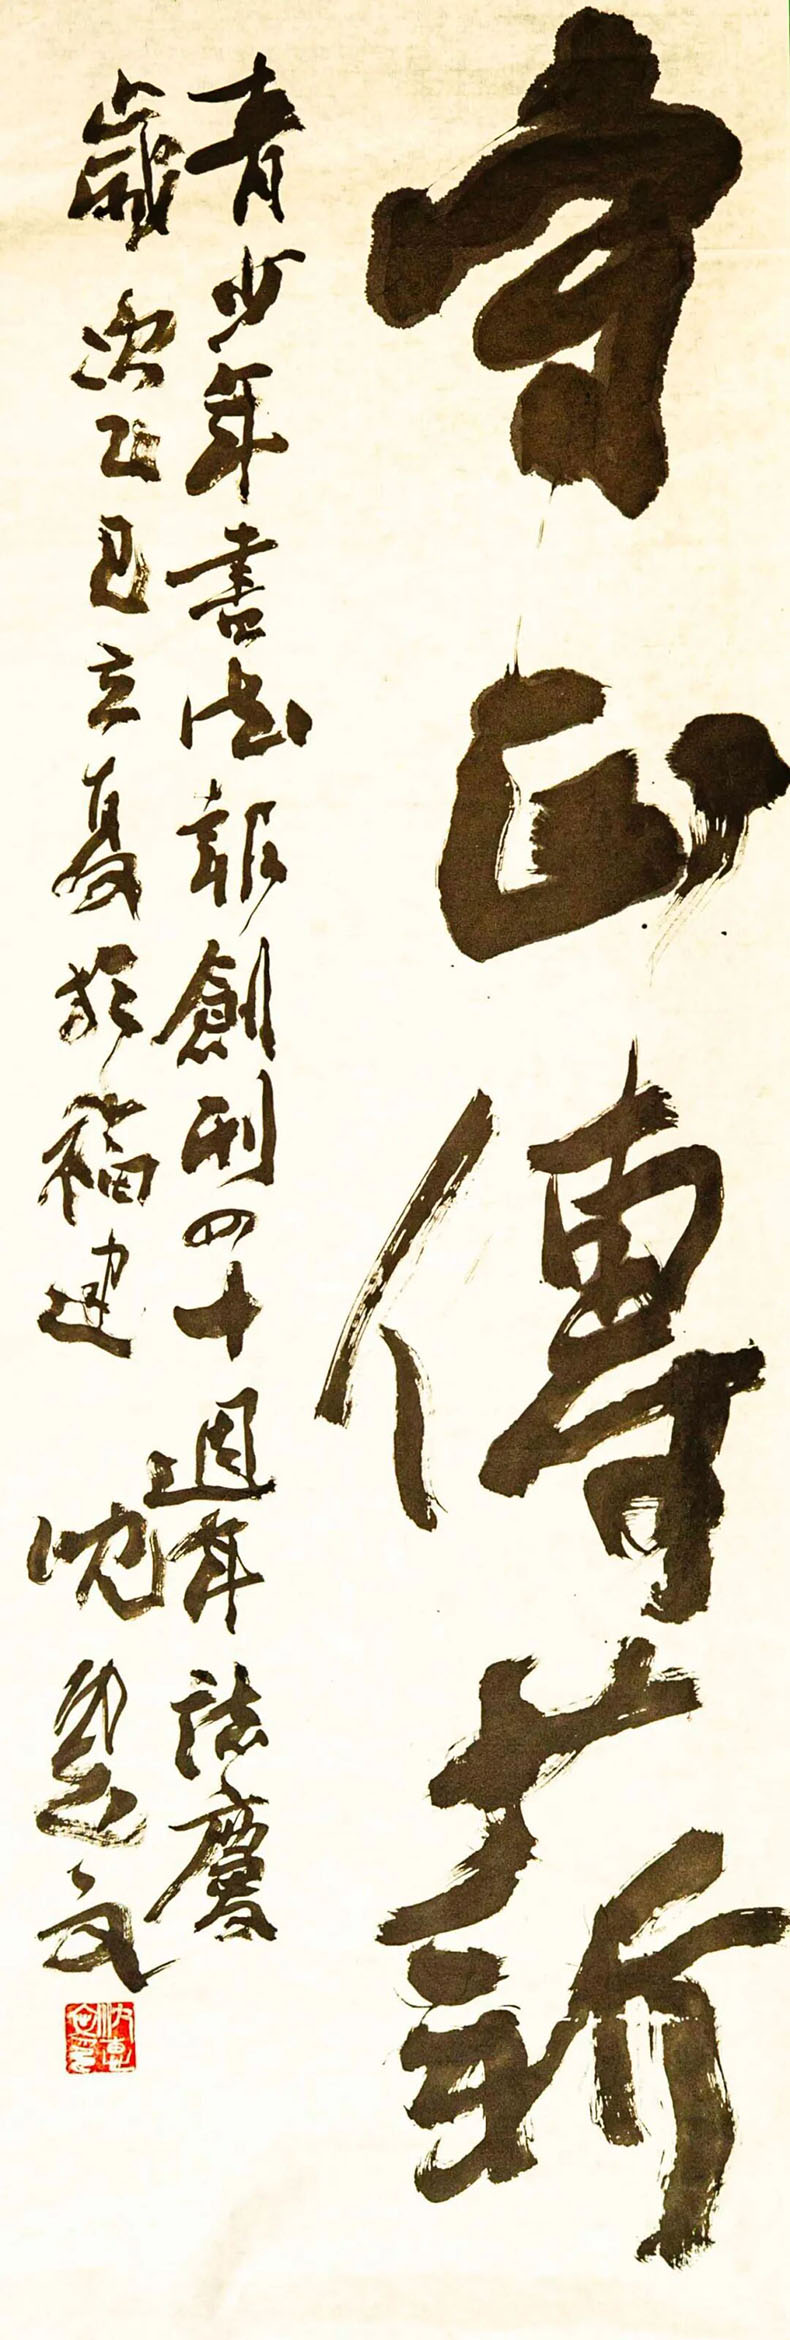 守正傳薪
青少年書法報創刊四十週年誌慶
歲次乙巳立夏於福建 沈